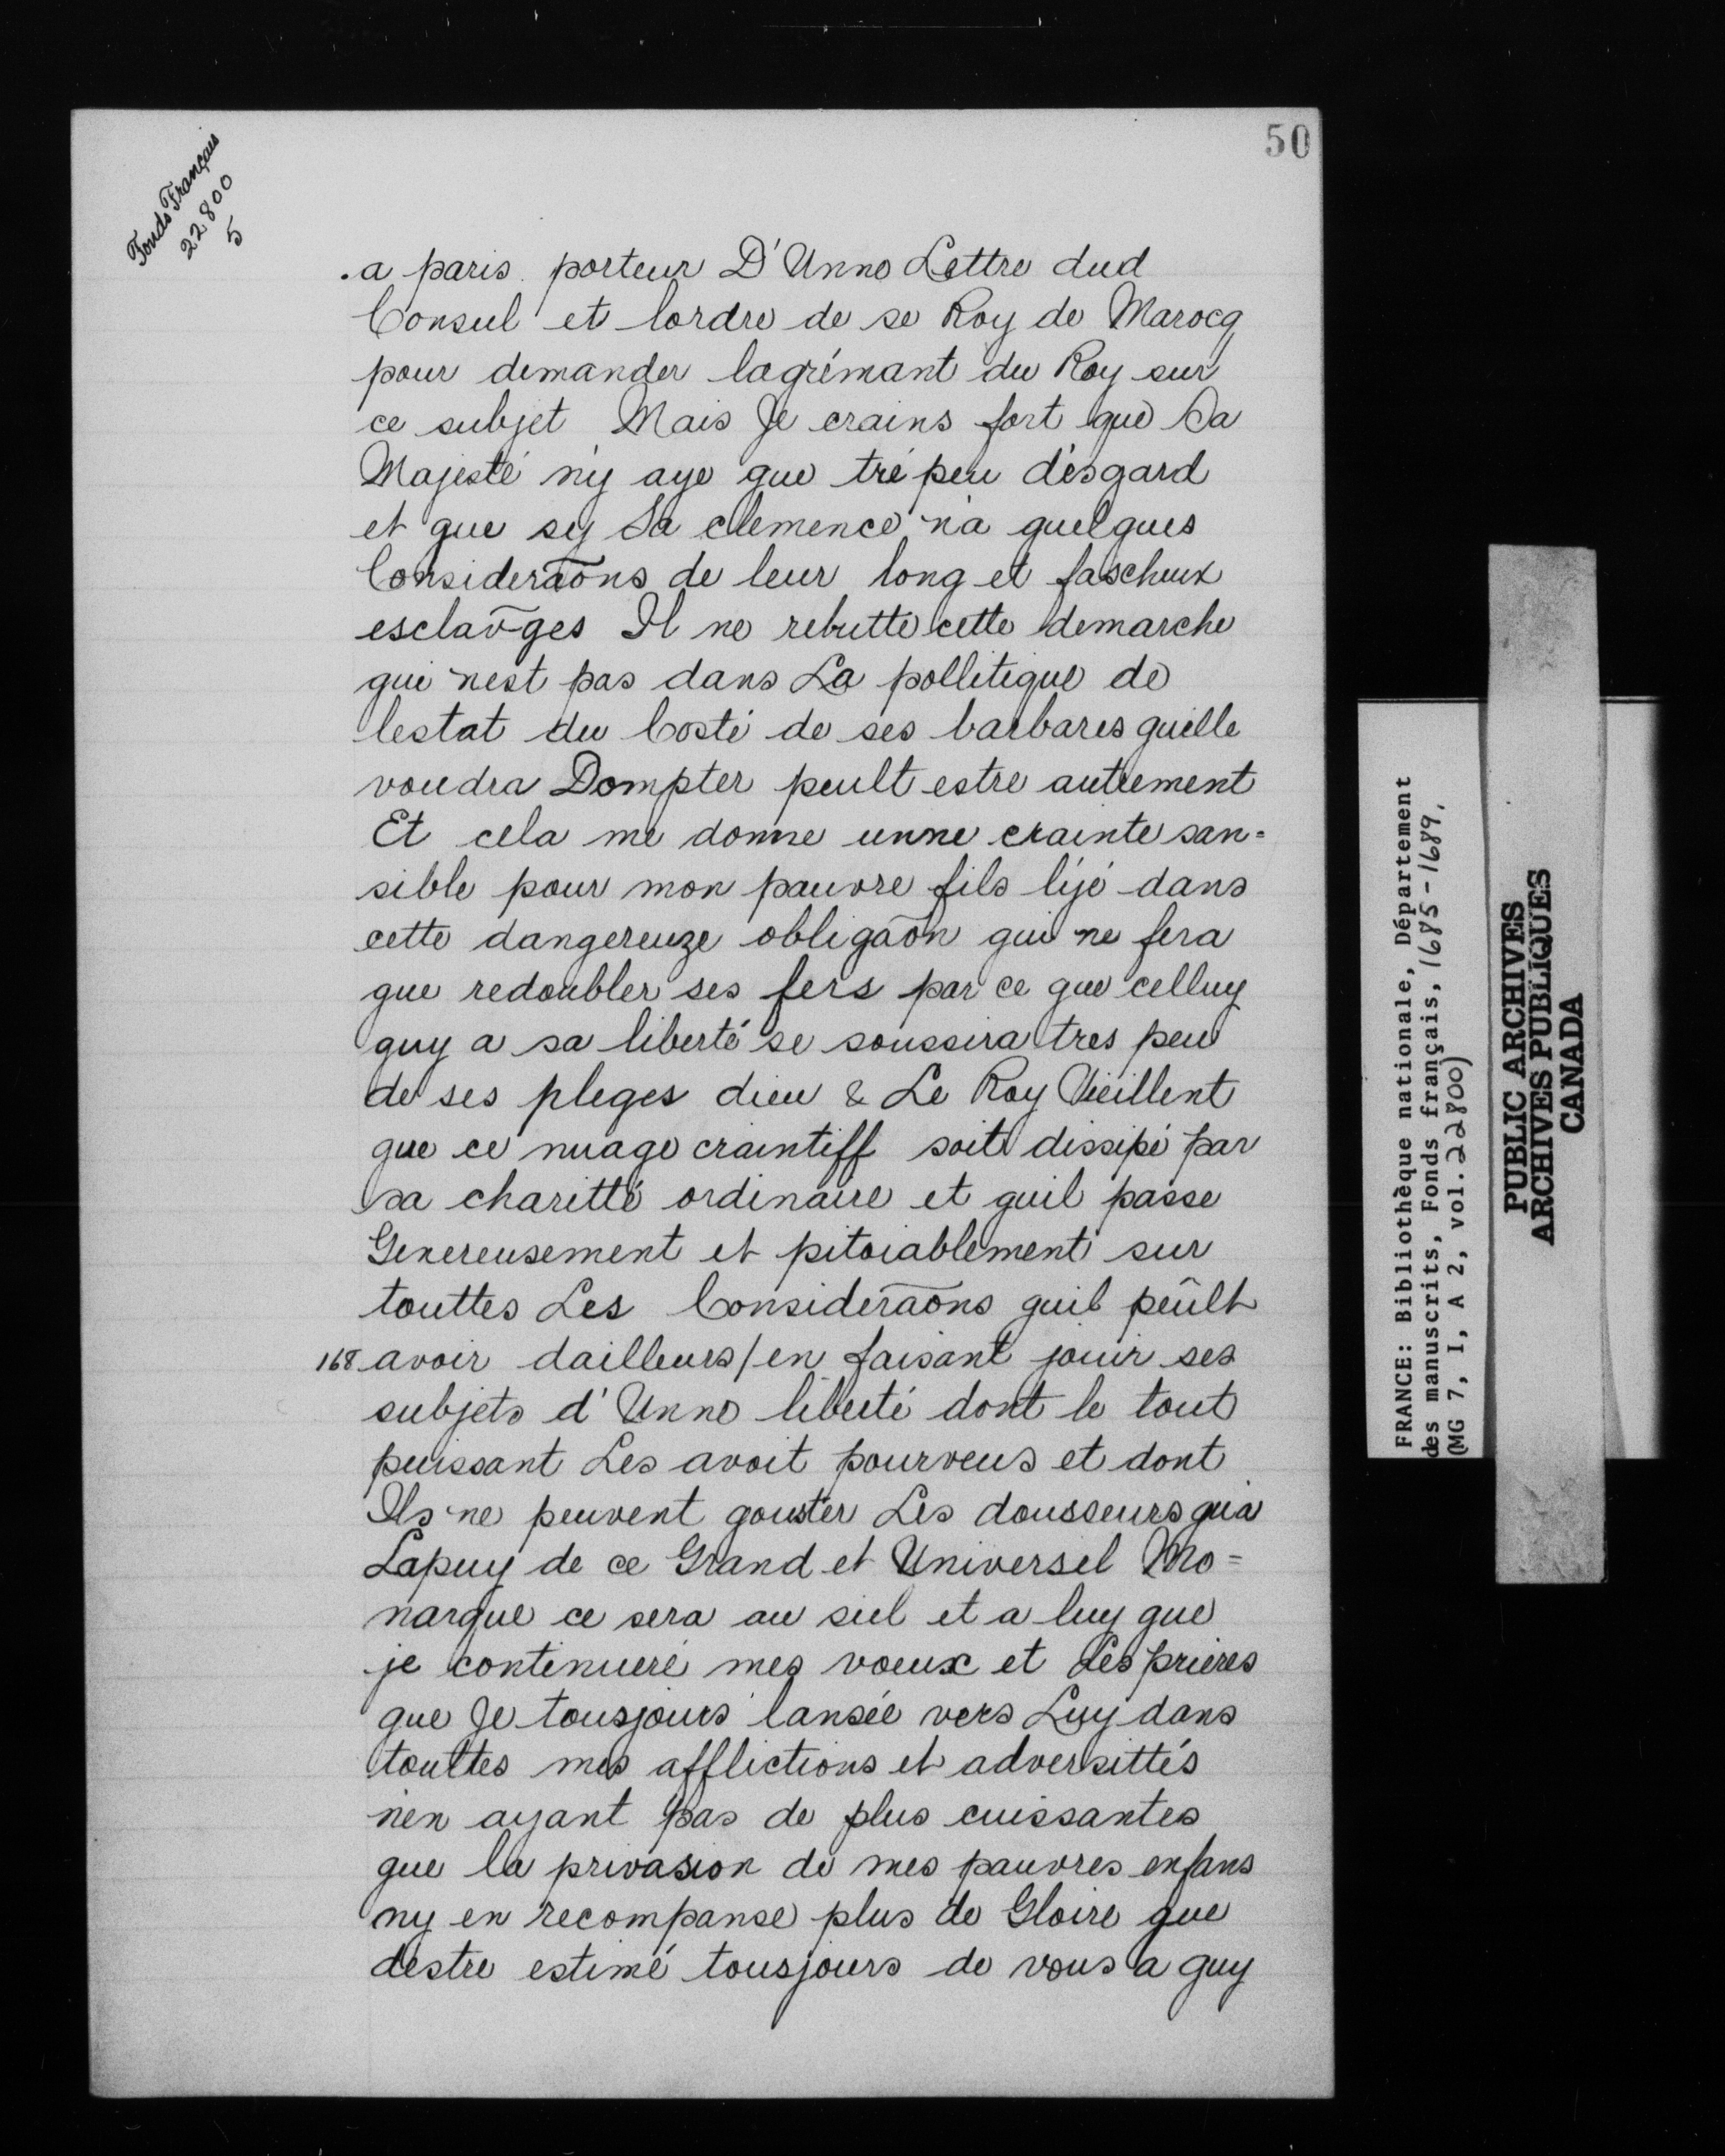 50
Fonds Français
22800
5
.a paris. porteur D'Unne Lettre dud
Consul et lordre de se Roy de Marocq
pour demander lagrémant du Roy sur
ce subjet Mais Je crains fort que Sa
Majesté n'y aye que tré peu d'esgard
et que sy Sa clemence n'a quelques
Consideraõns de leur long et fascheux
esclaṽges Il ne rebutte cette demarche
qui n'est pas dans La pollitique de
lestat du Costé de ses barbares quelle
voudra Dompter peult estre autrement
Et cela me donne unne crainte san=
sible pour mon pauvre fils lijé dans
cette dangereuze obligaõn qui ne fera
que redoubler ses fers par ce que celluy
quy a sa liberté se soussira tres peu
de ses pleges dieu & Le Roy Vieillent
que ce nuage craintiff soit dissipé par
sa charitté ordinaire et quil passe
Genereusement et pitoiablement sur
touttes Les Consideraõns quil peûlt
168 avoir dailleurs/en faisant jouir ses
subjets d'Unne liberté dont le tout
puissant Les avoit pourveus et dont
Ils ne peuvent gouster Les dousseurs qu'a
Lapuy de ce Grand et Universel Mo=
narque ce sera au siel et a luy que
je continueré mes voeux et Les prieres
que Je tousjours lansée vers Luy dans
touttes mes afflictions et adversittés
n'en ayant pas de plus cuissantes
que la privasion de mes pauvres enfans
ny en recompanse plus de Gloire que
destre estimé tousjours de vous a quy
FRANCE: Bibliothèque nationale, Département
des manuscrits, Fonds français, 1685-1689.
(MG 7, I, A 2, vol. 22800)
PUBLIC ARCHIVES
ARCHIVES PUBLIQUES
CANADA